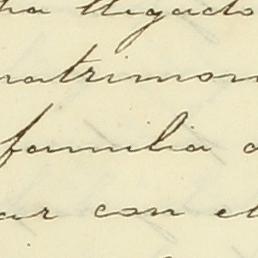 ha llegado
matrimon
familia
ar con el